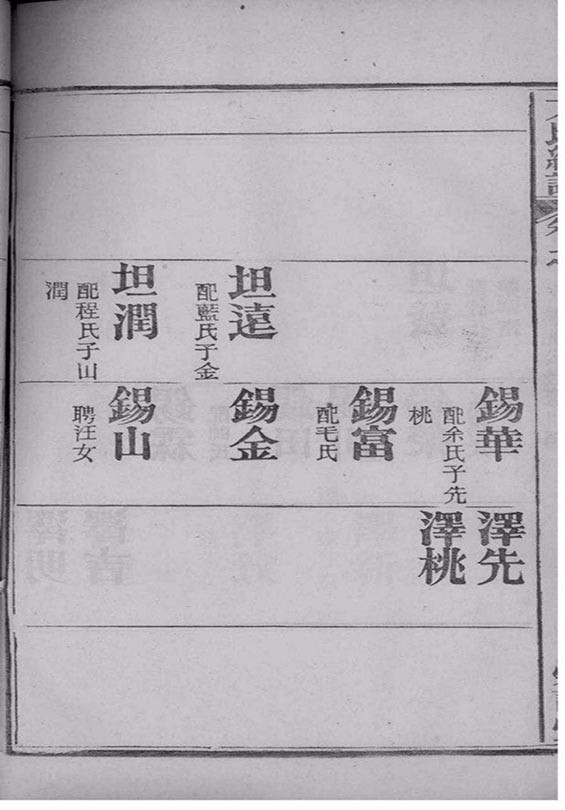 坦遠
配藍氏子金
坦潤
配程氏子山
潤
錫華
配余氏子先
桃
錫富
配毛氏
錫金
錫山
聘汪女
澤先
澤桃